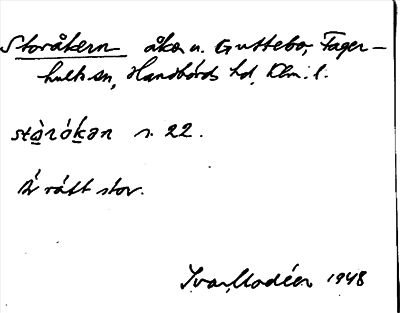 Storåkern åker u. Guttebo, Fager-
hults sn, Handbörds hd, Klm. l.
stò̀rǻkan s. 22.
Är rätt stor.
Ivar Modéer 1948